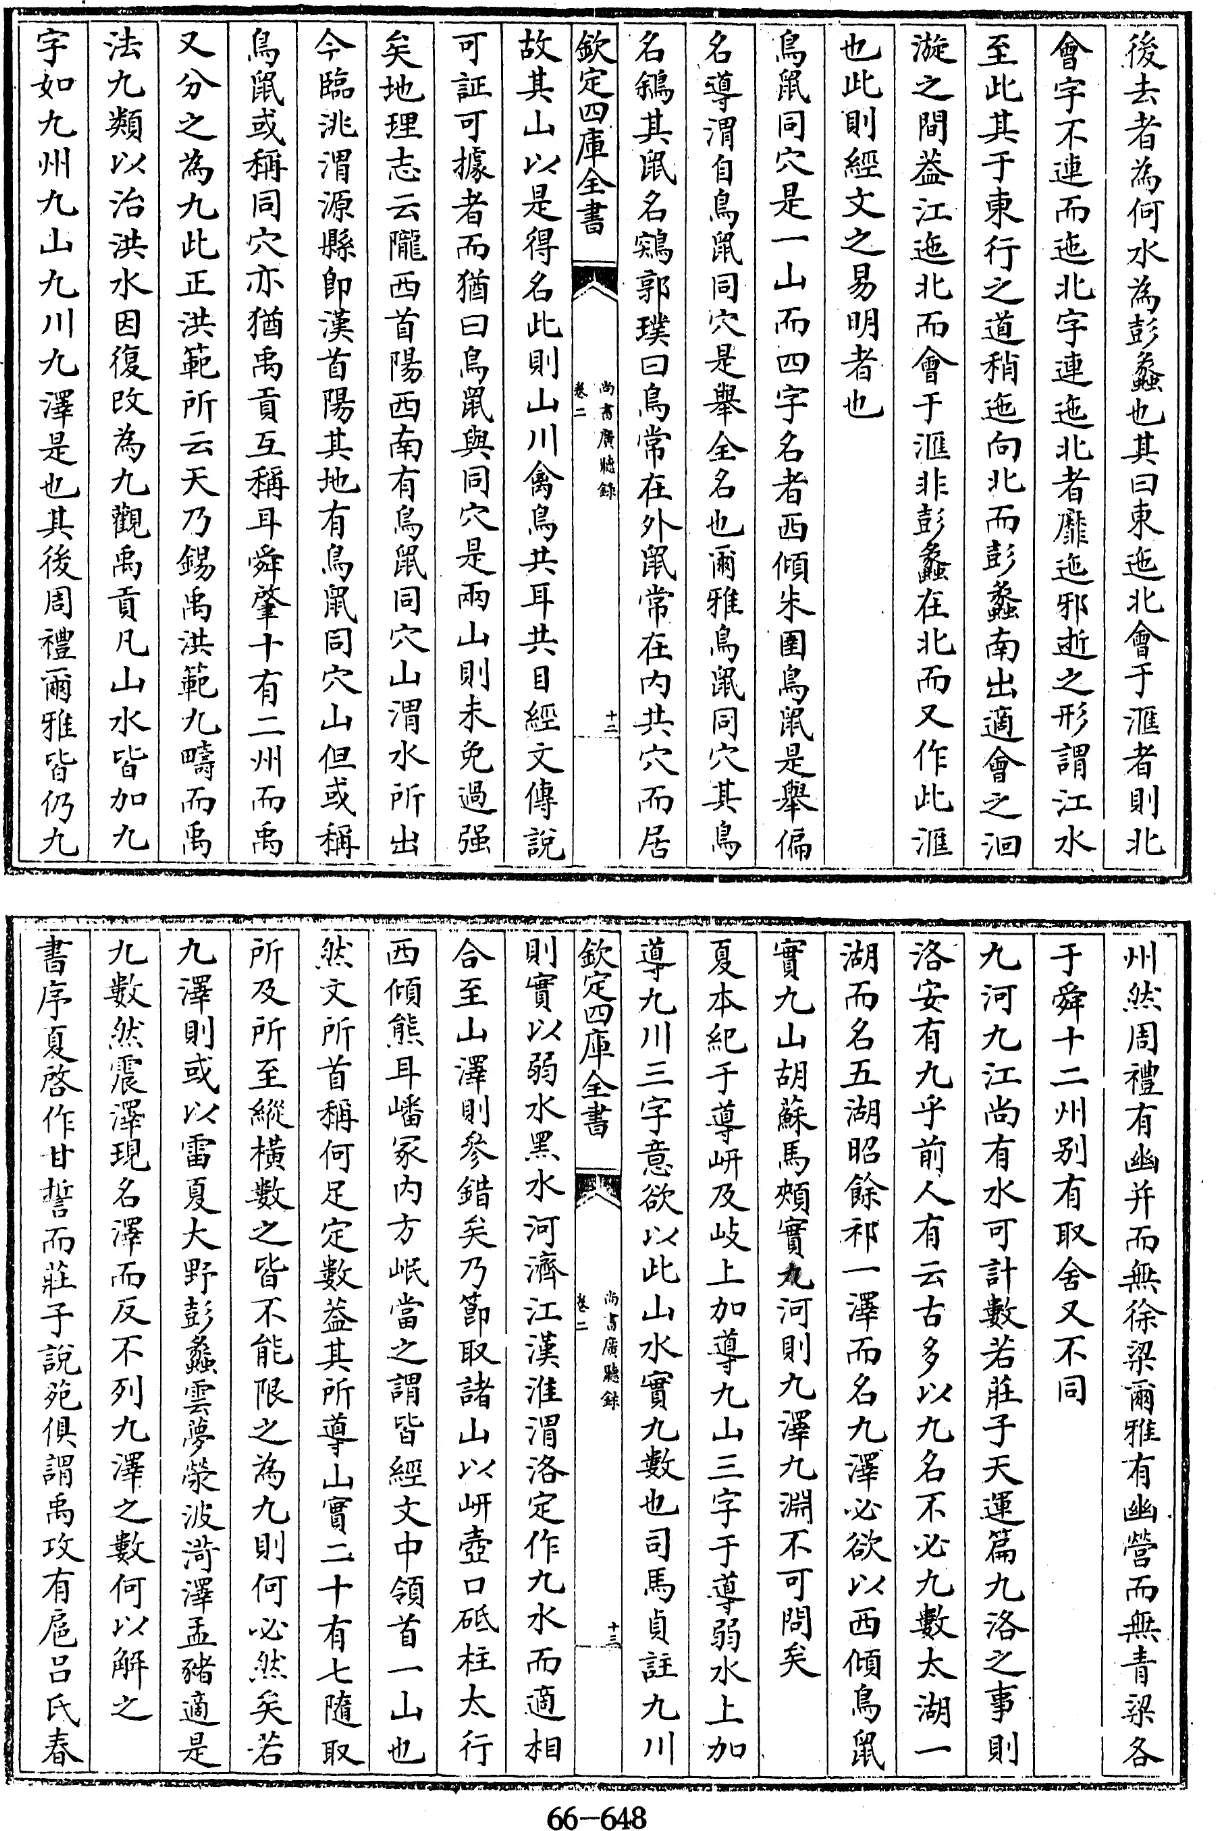 後去者為何水為彭蠡也其曰東迤北會于滙者則北
會字不連而迤北字連迤北者靡迤邪逝之形謂江水
至此其于東行之道稍迤向北而彭蠡南出適會之洄
漩之間葢江迤北而會于滙非彭蠡在北而又作此滙
也此則經文之易明者也
鳥鼠同穴是一山而四字名者西傾朱圉鳥鼠是舉偏
名導渭自鳥鼠同穴是舉全名也爾雅鳥鼠同穴其鳥
名鵌其鼠名鼵郭璞曰鳥常在外鼠常在内共穴而居
欽定四庫全書
尚書廣聽錄
卷二
十二
故其山以是得名此則山川禽鳥共耳共目經文傳說
可証可據者而猶曰鳥鼠與同穴是兩山則未免過强
矣地理志云隴西首陽西南有鳥鼠同穴山渭水所出
今臨洮渭源縣即漢首陽其地有鳥鼠同穴山但或稱
鳥鼠或稱同穴亦猶禹貢互稱耳舜肇十有二州而禹
又分之為九此正洪範所云天乃錫禹洪範九疇而禹
法九類以治洪水因復改為九觀禹貢凡山水皆加九
字如九州九山九川九澤是也其後周禮爾雅皆仍九
州然周禮有幽并而無徐梁爾雅有幽營而無青梁各
于舜十二州别有取舍又不同
九河九江尚有水可計數若莊子天運篇九洛之事則
洛安有九乎前人有云古多以九名不必九數太湖一
湖而名五湖昭餘祁一澤而名九澤必欲以西傾鳥鼠
實九山胡蘇馬頰實九河則九澤九淵不可問矣
夏本紀于導岍及岐上加導九山三字于導弱水上加
導九川三字意欲以此山水實九數也司馬貞註九川
欽定四庫全書
尚書廣聽錄
卷二
十三
則實以弱水黑水河濟江漢淮渭洛定作九水而適相
合至山澤則參錯矣乃節取諸山以岍壺口砥柱太行
西傾熊耳嶓冢内方岷當之謂皆經文中領首一山也
然文所首稱何足定數葢其所導山實二十有七隨取
所及所至縱橫數之皆不能限之為九則何必然矣若
九澤則或以雷夏大野彭蠡雲夢滎波菏澤孟豬適是
九數然震澤現名澤而反不列九澤之數何以解之
書序夏啓作甘誓而莊子說苑俱謂禹攻有扈吕氏春
66-648